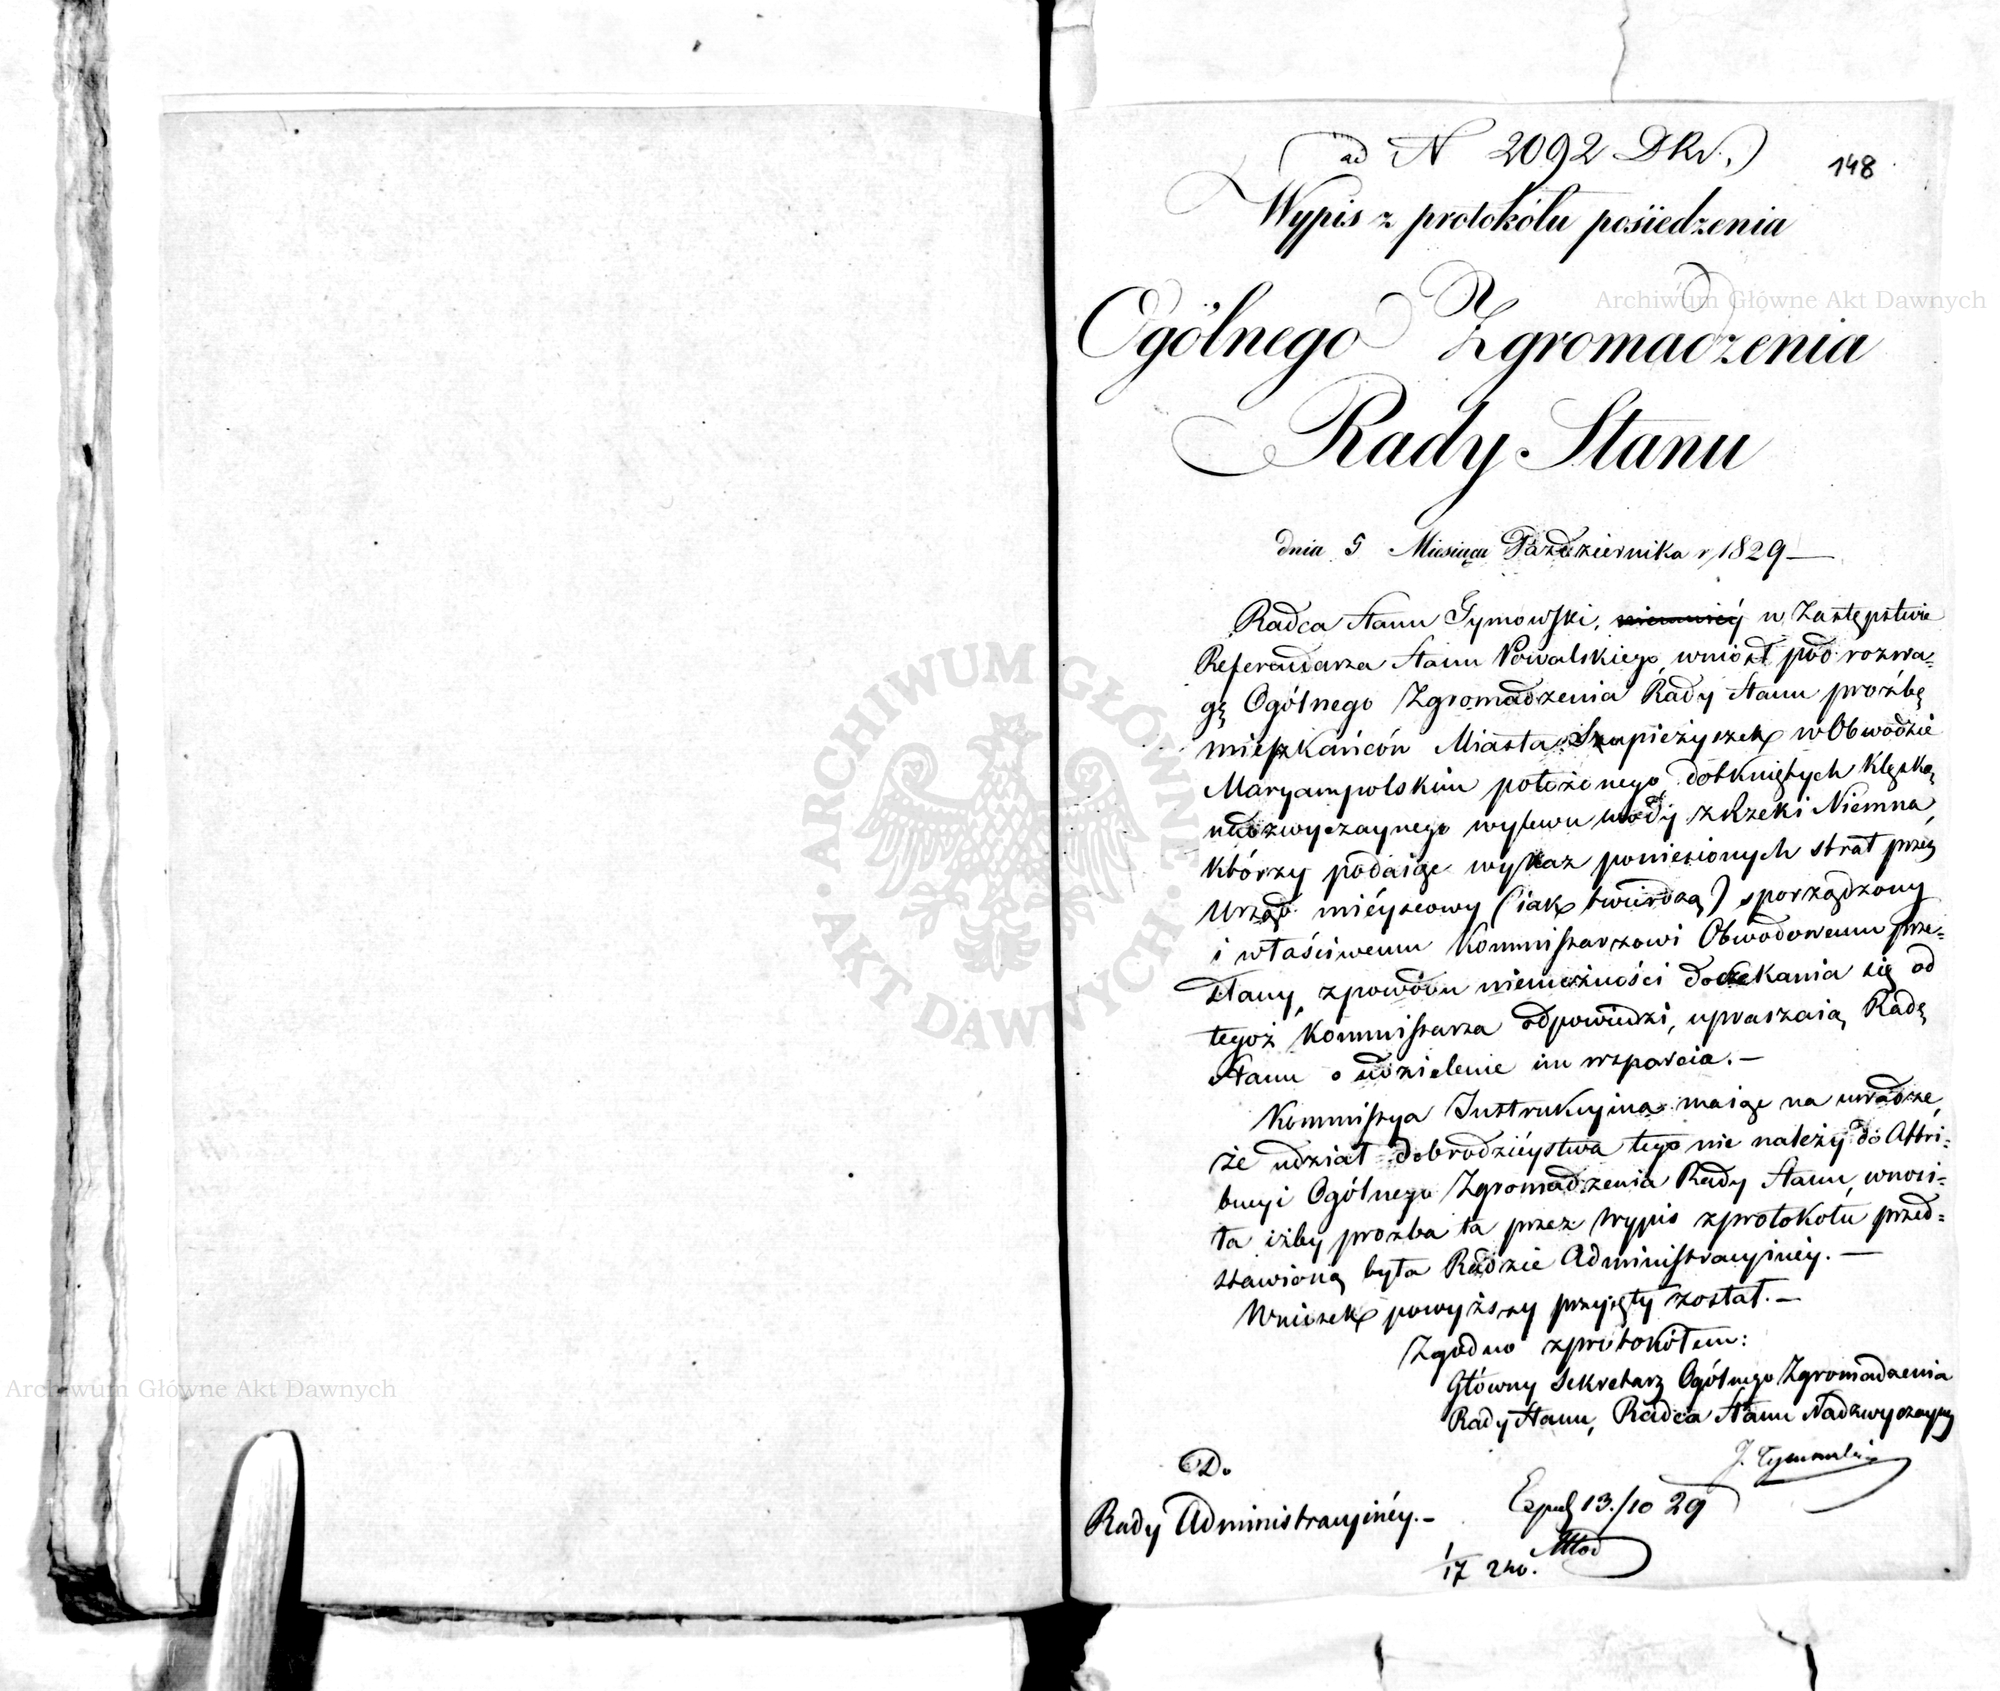 ad N 2092 DKr.
148
Wypis z protokółu posiedzenia
Ogólnego Zgromadzenia
Rady Stanu
dnia 5 Miesiąca Października r 1829 —
Radca Stanu Tymowski, w Zastępstwie
Referendarza Stanu Kowalskiego, wniósł pod rozwa=
gę Ogólnego Zgromadzenia Rady Stanu proźbę
mieszkańców Miasta Szapieżyszek w Obwodzie
Maryampolskim położonego, dotkniętych klęską
nadzwyczaynego wylewu wody z Rzeki Niemna,
którzy podaiąc wykaz poniesionych strat przez
Urząd mieyscowy (iak twierdzą) sporządzony
i właściwemu Kommissarzowi Obwodowemu prze=
słany, z powodu niemożności doczekania się od
tegoż Kommissarza odpowiedzi, upraszaią Radę
Stanu o udzielenie im wsparcia. —
Kommissya Instrukcyina maiąc na uwadze,
że udział dobrodzieystwa tego nie należy do Attri=
bucyi Ogólnego Zgromadzenia Rady Stanu, wnosi=
ła iżby prozba ta przez Wypis z protokółu przed=
stawioną była Radzie Administracyiney. —
Wniosek powyższy przyięty został. —
Zgodno z protokółem:
Główny Sekretarz Ogólnego Zgromadzenia
Rady Stanu, Radca Stanu Nadzwyczayny
J. Tymowski
Do
Rady Administracyiney. —
13./10 29
1/17
Archiwum Główne Akt Dawnych
Archiwum Główne Akt Dawnych
ARCHIWUM GŁÓWNE
AKT DAWNYCH